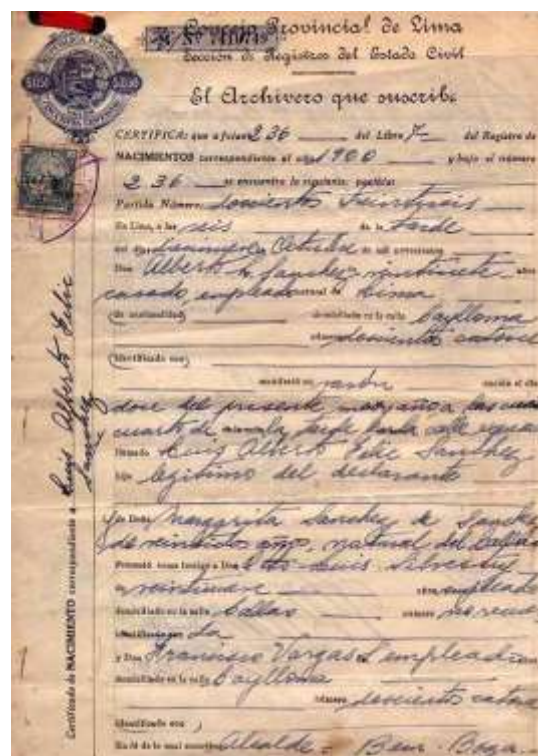 Concejo Provincial de Lima
Sección de Registros del Estado Civil
El Archivero que suscribe
CERTIFICA: que a fojas 236 del Libro 7 del Registro de
NACIMIENTOS correspondiente al año 1900 y bajo el número
236 se encuentra la siguiente partida:
Partida Número doscientos treintiseis
En Lima, a las seis de la tarde
del día de Octubre de mil novecientos
Don Alberto Sanchez, veintisiete años
casado, empleado natural de Lima
(de nacionalidad) domiciliado en la calle Caylloma
número doscientos catorce
(identificado con)
manifestó un varón nacido el día
doce del presente mes y año a las
cuarto de la tarde calle
llamado Luis Alberto Felix Sanchez
hijo legítimo del declarante
y de Doña Margarita Sanchez de Sanchez
de veintidos años, natural del Callao
Presentó como testigo a Don Luis
veintinueve años empleado
domiciliado en la calle Callao número no recuer
identificado con da
y Don Francisco Vargas empleado
domiciliado en la calle Caylloma
número doscientos catorce
identificado con )
En fé de lo cual Alcalde = Ben. Boza
Certificado de NACIMIENTO correspondiente a Luis Alberto Felix
Sanchez